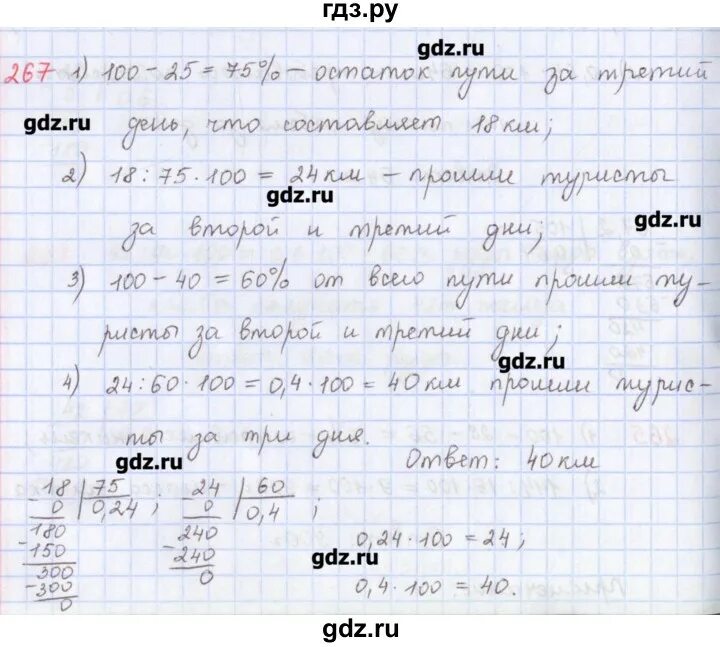 гдз.ру
gdz.ru
267 1) 100 - 25 = 75% - остаток пути за третий
gdz.ru
день, что составляет 18 км;
2) 18 : 75 · 100 = 24 км - прошли туристы
gdz.ru
gdz.ru
за второй и третий дни;
3) 100 - 40 = 60% от всего пути прошли ту-
ристы за второй и третий дни;
gdz.ru
4) 24 : 60 · 100 = 0,4 · 100 = 40 км прошли турис-
ты за три дня.
gdz.ru
Ответ: 40 км
18 | 75 24 | 60
- 0 | 0,24 ; - 0 | 0,4 ;
180 240
- 150 - 240
300 0
- 300
0
0,24 · 100 = 24;
gdz.ru
0,4 · 100 = 40.
gdz.ru